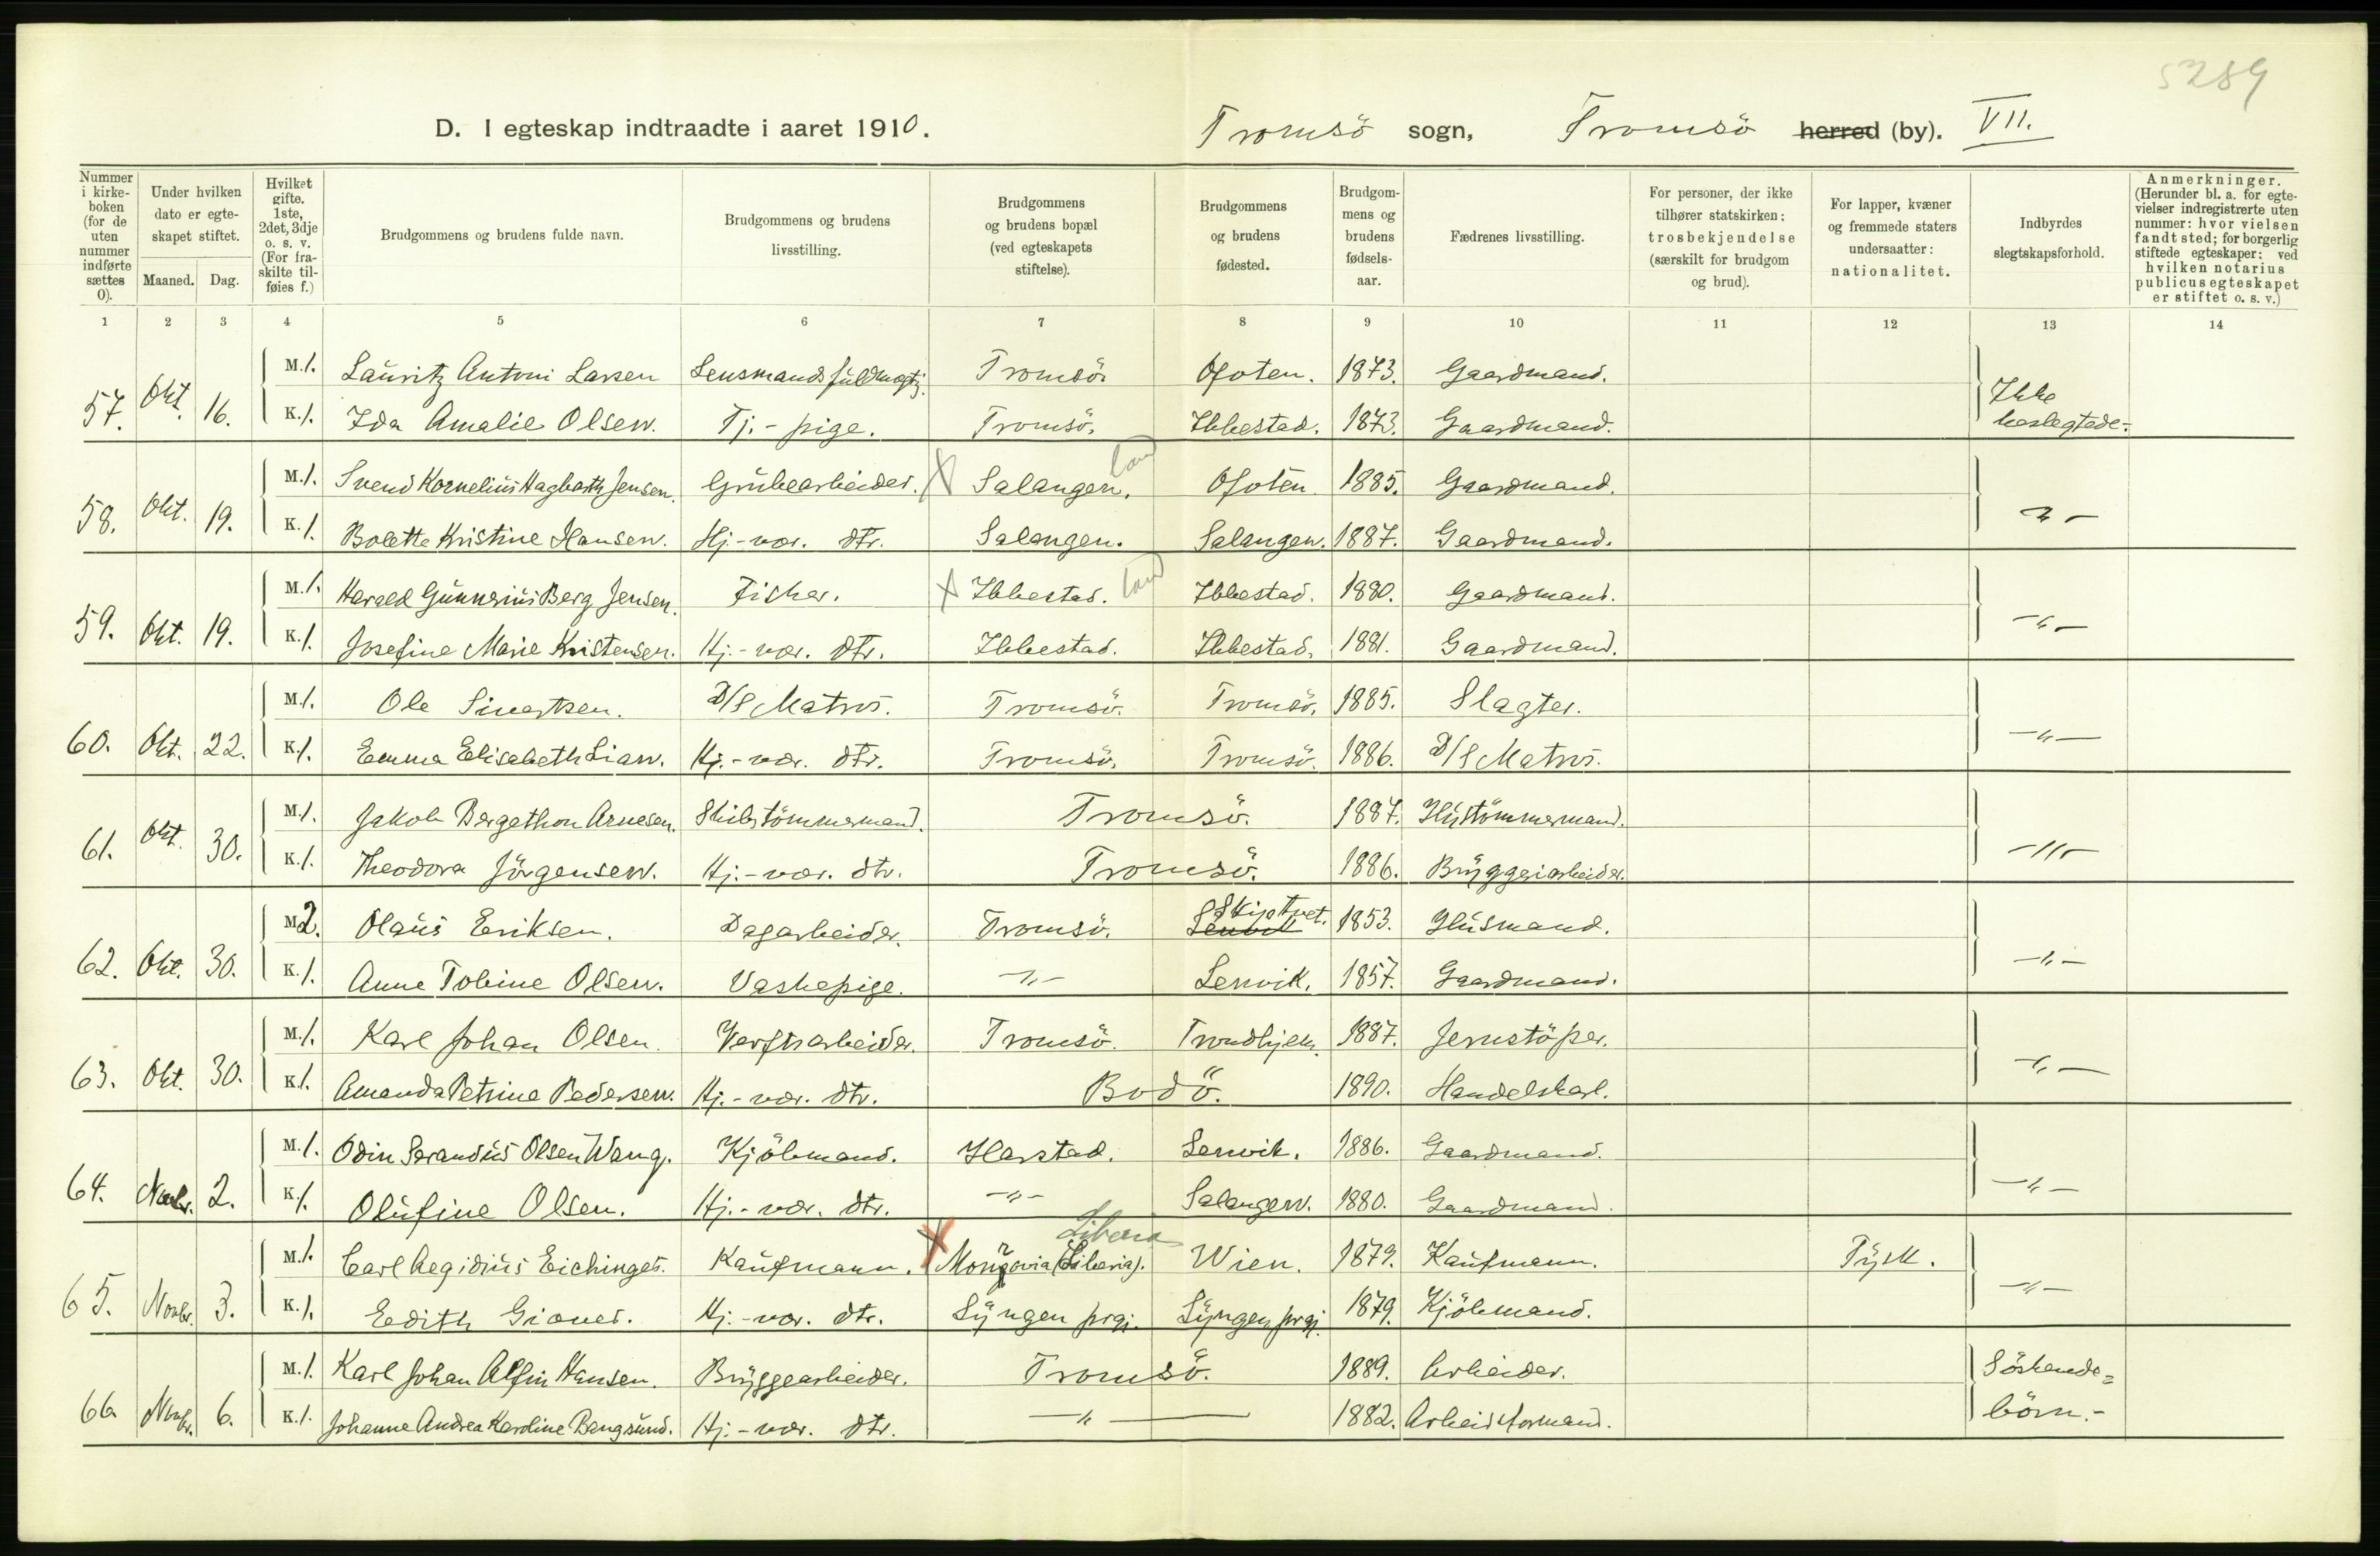 5289
D. I egteskap indtraadte i aaret 1910. Tromsö sogn, Tromsö herred (by). VII.
Nummer i kirkeboken (for de uten nummer indførte sættes 0). Under hvilken dato er egteskapet stiftet. Maaned. Dag. Hvilket gifte. 1ste, 2det, 3dje o. s. v. (For fraskilte tilføies f.) Brudgommens og brudens fulde navn. Brudgommens og brudens livsstilling. Brudgommens og brudens bopæl (ved egteskapets stiftelse). Brudgommens og brudens fødested. Brudgommens og brudens fødselsaar. Fædrenes livsstilling. For personer, der ikke tilhører statskirken: trosbekjendelse (særskilt for brudgom og brud). For lapper, kvæner og fremmede staters undersaatter: nationalitet. Indbyrdes slegtskapsforhold. Anmerkninger. (Herunder bl. a. for egtevielser indregistrerte uten nummer: hvor vielsen fandt sted; for borgerlig stiftede egteskaper: ved hvilken notarius publicus egteskapet er stiftet o. s. v.)
1 2 3 4 5 6 7 8 9 10 11 12 13 14
57. Okt. 16. M. 1. Lauritz Antoni Larsen Lensmandsfuldmegtig. Tromsö. Ofoten. 1873. Gaardmand. Ikke beslegtede.-
K. 1. Ida Amalie Olsen. Tj.-pige. Tromsö. Ibbestad. 1873. Gaardmand.
58. Okt. 19. M. 1. Svend Kornelius Hagbarth Jensen. Grubearbeider. X Salangen. land Ofoten. 1885. Gaardmand. -"-
K. 1. Bolette Kristine Hansen. Hj.-vær. dtr. Salangen. Salangen. 1887. Gaardmand.
59. Okt. 19. M. 1. Harald Gunnerius Berg Jensen. Fisker. X Ibbestad. land Ibbestad. 1880. Gaardmand. -"-
K. 1. Josefine Marie Kristensen. Hj.-vær. dtr. Ibbestad. Ibbestad. 1881. Gaardmand.
60. Okt. 22. M. 1. Ole Sivertsen. D/S Matros. Tromsö. Tromsö. 1885. Slagter. -"-
K. 1. Emma Elisabeth Lian. Hj.-vær. dtr. Tromsö. Tromsö. 1886. D/S Matros.
61. Okt. 30. M. 1. Jakob Bergethon Arnesen. Skibstömmermand. Tromsö. 1887. Hustömmermand. -"-
K. 1. Theodora Jörgensen. Hj.-vær. dtr. Tromsö. 1886. Bryggeriarbeider.
62. Okt. 30. M. 2. Olaus Eriksen. Dagarbeider. Tromsö. Lenvik Skiptvet. 1853. Husmand. -"-
K. 1. Anne Tobine Olsen. Vaskepige. -"- Lenvik. 1857. Gaardmand.
63. Okt. 30. M. 1. Karl Johan Olsen. Verftsarbeider. Tromsö. Trondhjem. 1887. Jernstöper. -"-
K. 1. Amanda Petrine Pedersen. Hj.-vær. dtr. Bodö. 1890. Handelskarl.
64. Novbr. 2. M. 1. Odin Serandius Olsen Wang. Kjöbmand. Harstad. Lenvik. 1886. Gaardmand. -"-
K. 1. Olufine Olsen. Hj.-vær. dtr. -"- Salangen. 1880. Gaardmand.
Liberia
65. Novbr. 3. M. 1. Carl Aegidius Eichinger. Kaufmann. X Monrovia (Liberia). Wien. 1879. Kaufmann. Tysk. -"-
K. 1. Edith Giæver. Hj.-vær. dtr. Lyngen prgj. Lyngen prgj. 1879. Kjöbmand.
66 Novbr. 6. M. 1. Karl Johan Alfin Hansen. Bryggearbeider. Tromsö. 1889. Arbeider. Söskende=börn.-
K. 1. Johanne Andrea Karoline Bangsund. Hj.-vær. dtr. -"- 1882. Arbeidsformand.